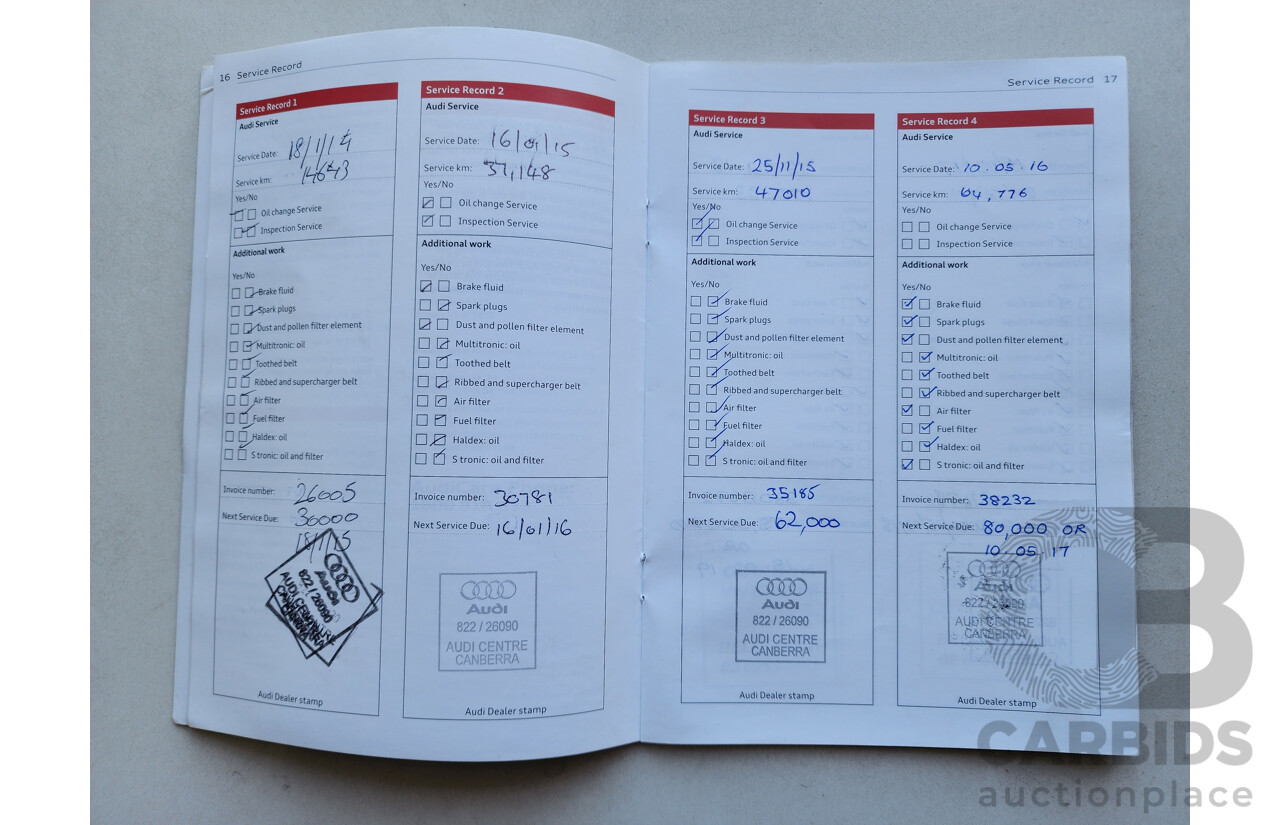 16 Service Record
Service Record 1
Audi Service
Service Date: 18/1/14
Service km: 14643
Yes/No
Oil change Service
Inspection Service
Additional work
Yes/No
Brake fluid
Spark plugs
Dust and pollen filter element
Multitronic: oil
Toothed belt
Ribbed and supercharger belt
Air filter
Fuel filter
Haldex: oil
S tronic: oil and filter
Invoice number: 26005
Next Service Due: 30000
18/1/15
Audi
822 / 26090
AUDI CENTRE
CANBERRA
Audi Dealer stamp
Service Record 2
Audi Service
Service Date: 16/01/15
Service km: 37,148
Yes/No
Oil change Service
Inspection Service
Additional work
Yes/No
Brake fluid
Spark plugs
Dust and pollen filter element
Multitronic: oil
Toothed belt
Ribbed and supercharger belt
Air filter
Fuel filter
Haldex: oil
S tronic: oil and filter
Invoice number: 30781
Next Service Due: 16/01/16
Audi
822 / 26090
AUDI CENTRE
CANBERRA
Audi Dealer stamp
Service Record 17
Service Record 3
Audi Service
Service Date: 25/11/15
Service km: 47010
Yes/No
Oil change Service
Inspection Service
Additional work
Yes/No
Brake fluid
Spark plugs
Dust and pollen filter element
Multitronic: oil
Toothed belt
Ribbed and supercharger belt
Air filter
Fuel filter
Haldex: oil
S tronic: oil and filter
Invoice number: 35185
Next Service Due: 62,000
Audi
822 / 26090
AUDI CENTRE
CANBERRA
Audi Dealer stamp
Service Record 4
Audi Service
Service Date: 10.05.16
Service km: 64,776
Yes/No
Oil change Service
Inspection Service
Additional work
Yes/No
Brake fluid
Spark plugs
Dust and pollen filter element
Multitronic: oil
Toothed belt
Ribbed and supercharger belt
Air filter
Fuel filter
Haldex: oil
S tronic: oil and filter
Invoice number: 38232
Next Service Due: 80,000 OR
10.05.17
Audi
822 / 26090
AUDI CENTRE
CANBERRA
Audi Dealer stamp
CARBIDS
auctionplace